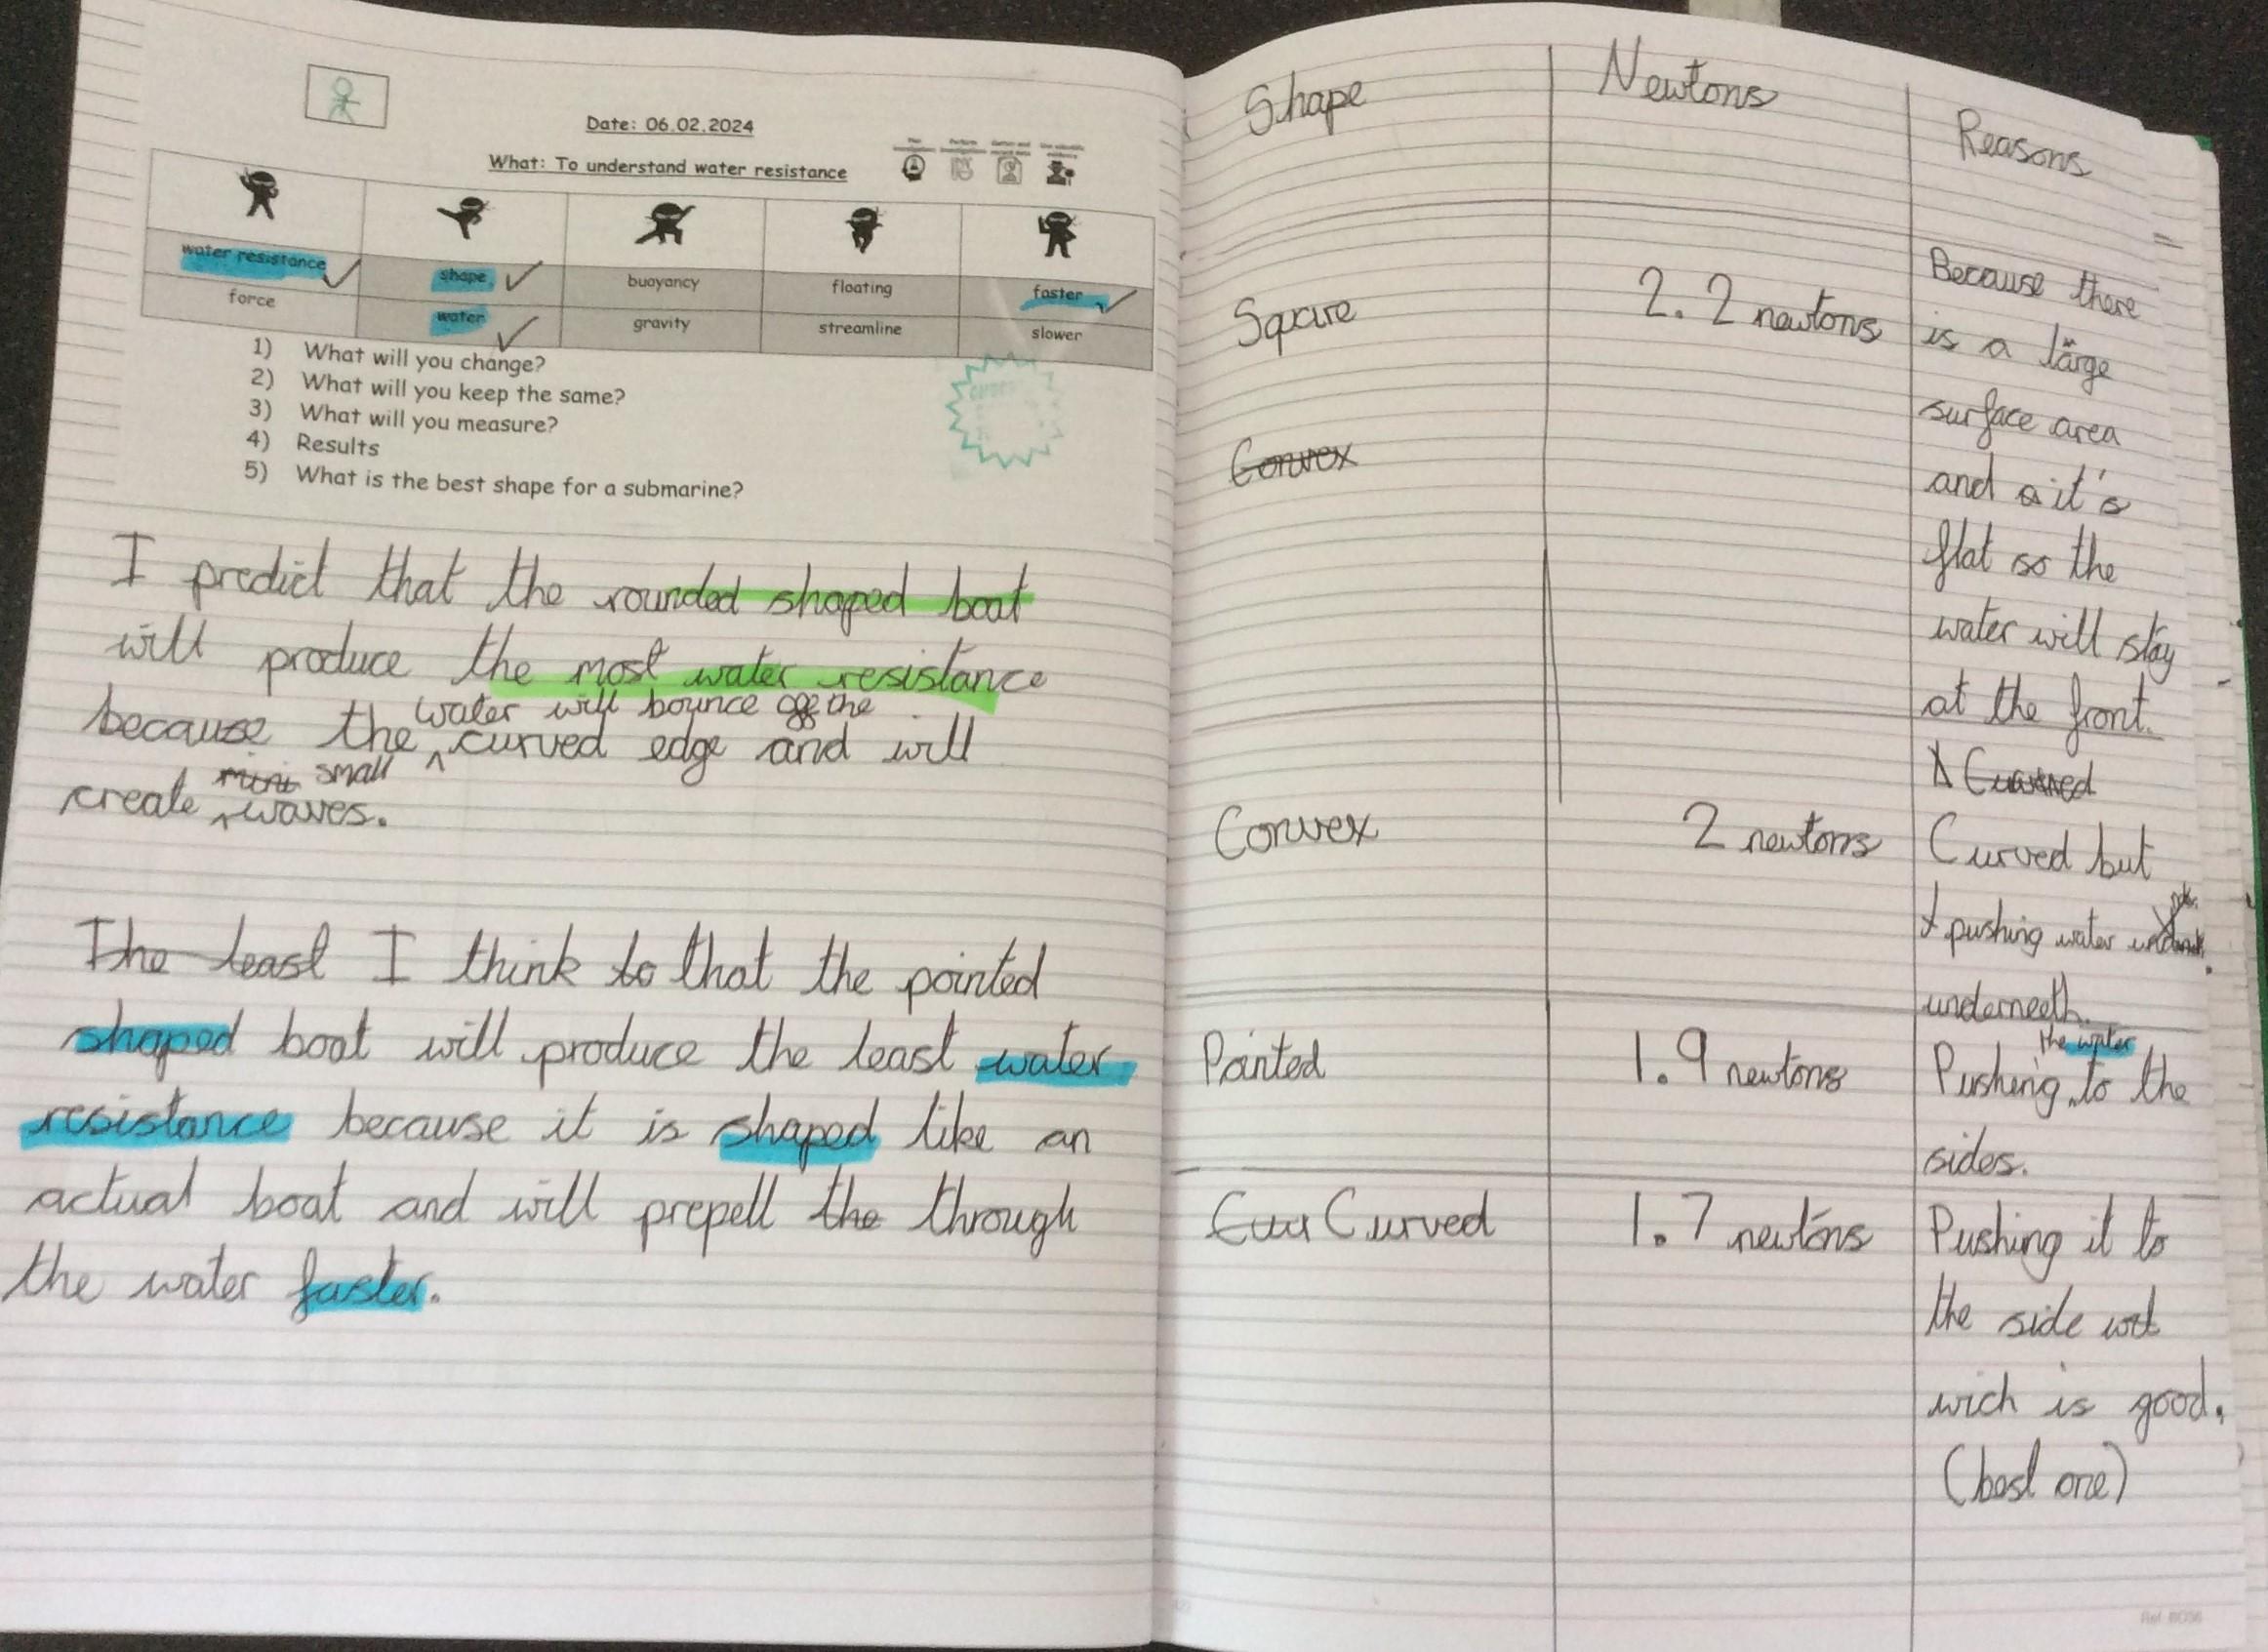 Date: 06.02.2024
What: To understand water resistance
water resistance shape buoyancy floating faster
force water gravity streamline slower
1) What will you change?
2) What will you keep the same?
3) What will you measure?
4) Results
5) What is the best shape for a submarine?
I predict that the rounded shaped boat
will produce the most water resistance
water will bounce off the
because the ^ curved edge and will
mini small
create ^ waves.
The least I think to that the pointed
shaped boat will produce the least water
resistance because it is shaped like an
actual boat and will prepell the through
the water faster.
Shape Newtons Reasons
Square 2.2 newtons Because there
is a large
surface area
Convex
and a it's
flat so the
water will stay
at the front.
Curved
Convex 2 newtons Curved but
pushing water
underneeth.
the water
Pointed 1.9 newtons Pushing to the
sides.
Cur Curved 1.7 newtons Pushing it to
the side
wich is good.
(best one)